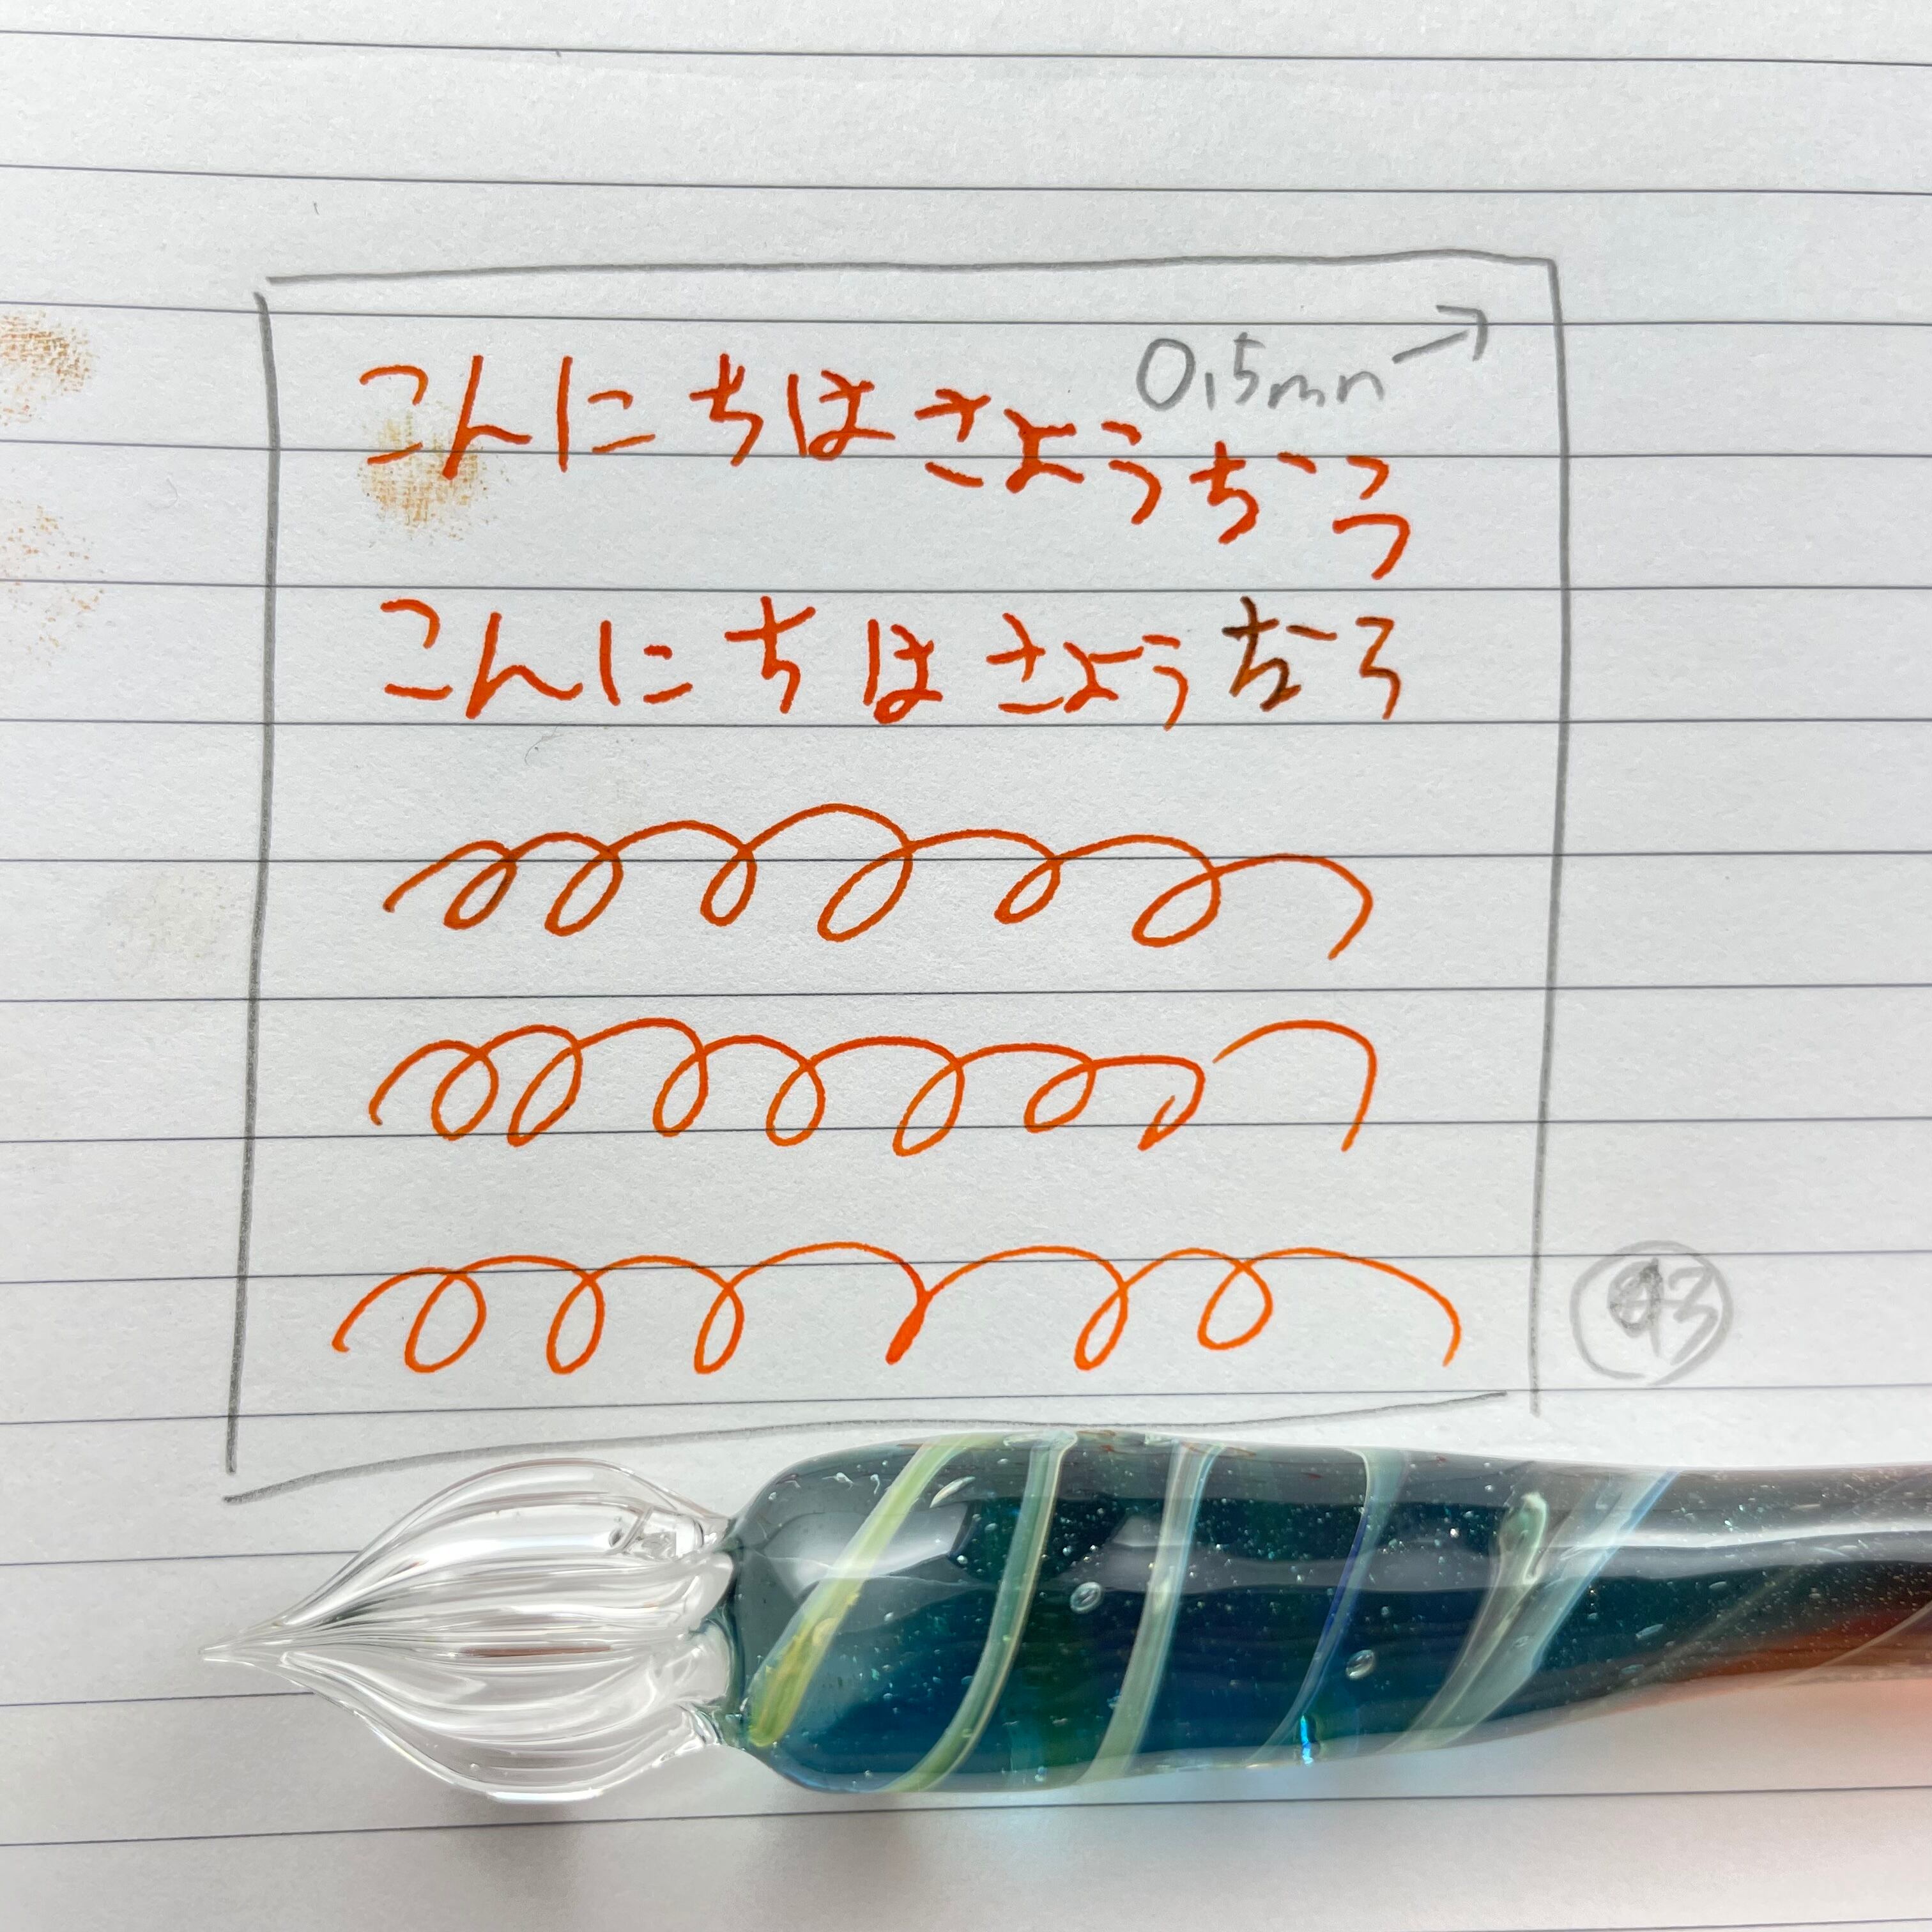 0.5mm→
こんにちはさようなら
こんにちはさようなら
43